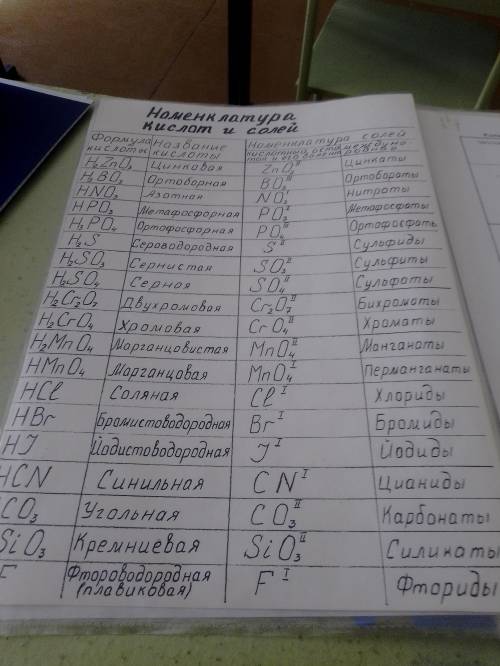 Номенклатура
кислот и солей
Формула кислоты Название кислоты Номенклатура солей
H₂ZnO₂ Цинковая ZnO₂ᴵᴵ Цинкаты
H₃BO₃ Ортоборная BO₃ᴵᴵᴵ Ортобораты
HNO₃ Азотная NO₃ᴵ Нитраты
HPO₃ Метафосфорная PO₃ᴵ Метафосфаты
H₃PO₄ Ортофосфорная PO₄ᴵᴵᴵ Ортофосфаты
H₂S Сероводородная Sᴵᴵ Сульфиды
H₂SO₃ Сернистая SO₃ᴵᴵ Сульфиты
H₂SO₄ Серная SO₄ᴵᴵ Сульфаты
H₂Cr₂O₇ Двухромовая Cr₂O₇ᴵᴵ Бихроматы
H₂CrO₄ Хромовая CrO₄ᴵᴵ Хроматы
H₂MnO₄ Марганцовистая MnO₄ᴵᴵ Манганаты
HMnO₄ Марганцовая MnO₄ᴵ Перманганаты
HCl Соляная Clᴵ Хлориды
HBr Бромистоводородная Brᴵ Бромиды
HJ Йодистоводородная Jᴵ Йодиды
HCN Синильная CNᴵ Цианиды
CO₃ Угольная CO₃ᴵᴵ Карбонаты
SiO₃ Кремниевая SiO₃ᴵᴵ Силикаты
F Фтороводородная (плавиковая) Fᴵ Фториды